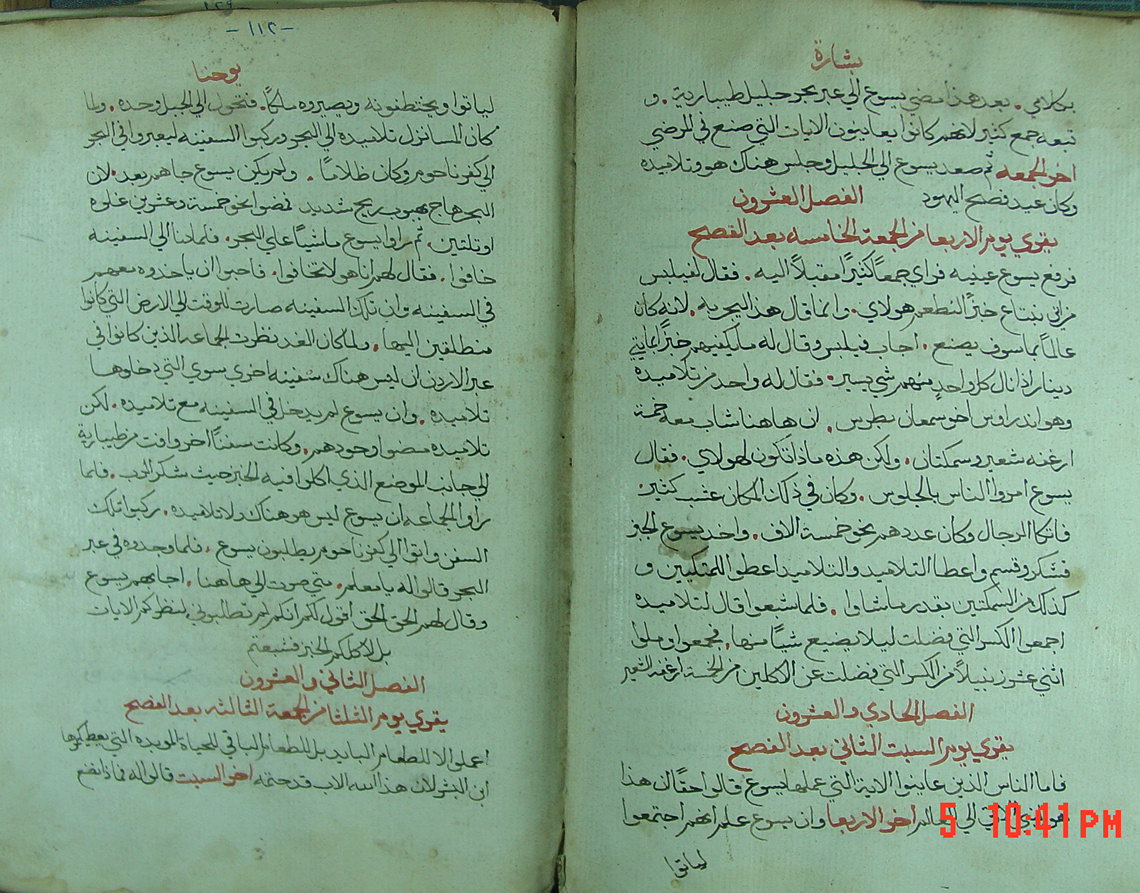 بشارة
بكلامي. بعد هذا مضي يسوع الي عبر بحر جليل طبيارية. و
تبعه جمع كثير لانهم كانوا يعاينون الايات التي صنع في المرضي
اخر الجمعه ثم صعد يسوع الي الجليل وجلس هناك هو وتلاميذه
وكان عيد فصح اليهود
الفصل العشرون
يقري يوم الاربعا من الجمعة الخامسه بعد الفصح
فرفع يسوع عينيه فراي جمعاً كثيراً مقبلاً اليه. فقال لفيلبس
من اين نبتاع خبزاً لنطعم هولاي. وانما قال هذا ليجربه. لانه كان
عالماً بما سوف يصنع. اجاب فيلبس وقال له ما يكفيهم خبزاً بمايتي
دينار اذا نال كل واحدٍ منهم شي يسير. فقال له واحد من تلاميذه
وهو اندراوس اخو سمعان بطرس. ان هاهنا شاب معه خمسة
ارغفه شعير وسمكتان. ولكن هذه ماذا تكون لهولاي. فقال
يسوع امروا الناس بالجلوس. وكان في ذلك المكان عشب كثير.
فاتكا الرجال وكان عددهم نحو خمسة الاف. واخذ يسوع الخبز
فشكر وقسم واعطا التلاميذ والتلاميذ اعطوا للمتكيين و
كذلك من السمكتين بقدر ما شاوا. فلما شبعوا قال لتلاميذه
اجمعوا الكسر التي فضلت ليلا يضيع شيأ منها. فجمعوا وملوا
اثني عشر زنبيلاً من الكسر التي فضلت عن الاكلين من الخمسة ارغفه الشعير
الفصل الحادي والعشرون
يقري يوم السبت الثاني بعد الفصح
فاما الناس الذين عاينوا الاية التي عملها يسوع قالوا حقاً ان هذا
هو النبي الاتي الي العالم اخر الاربعا وان يسوع علم انهم اجتمعوا
لياتوا
5 10:41 PM
-١١٢-
يوحنا
لياتوا ويختطفونه ويصيروه ملكاً. فتحول الي الجبل وحده. ولما
كان المسا نزل تلاميذه الي البحر وركبوا السفينه ليعبروا في البحر
الي كفرناحوم وكان ظلاماً. ولم يكن يسوع جاهم بعد. لان
البحر هاج بهبوب ريح شديد فمضوا نحو خمسة وعشرين غلوه
او ثلثين. ثم راوا يسوع ماشياً علي البحر. فلما دنا الي السفينه
خافوا. فقال لهم انا هو لا تخافوا. فاحبوا ان ياخذوه معهم
في السفينه وان تلك السفينه صارت للوقت الي الارض التي كانوا
منطلقين اليها. ولما كان الغد نظرت الجماعه الذين كانوا في
عبر الاردن ان ليس هناك سفينه اخري سوي التي دخلوها
تلاميذه. وان يسوع لم يدخل في السفينه مع تلاميذه. لكن
تلاميذه مضوا وحدهم. وكانت سفناً اخر وافت من طبيارية
الي جانب الموضع الذي اكلوا فيه الخبز حيث شكر الرب. فلما
راوا الجماعه ان يسوع ليس هو هناك ولا تلاميذه. ركبوا تلك
السفن واتوا الي كفرناحوم يطلبون يسوع. فلما وجدوه في عبر
البحر قالوا له يا معلم. متي صرت الي هاهنا. اجابهم يسوع
وقال لهم الحق الحق اقول لكم انكم لم تطلبوني لنظركم الايات
بل لاكلكم الخبز فشبعتم
الفصل الثاني والعشرون
يقري يوم الثلثا من الجمعة الثالثه بعد الفصح
اعملوا لا للطعام البايد بل للطعام الباقي للحياة الموبده التي يعطيكموها
ابن البشر لان هذا الله الاب قد ختمه اخر السبت قالوا له فماذا نصنع